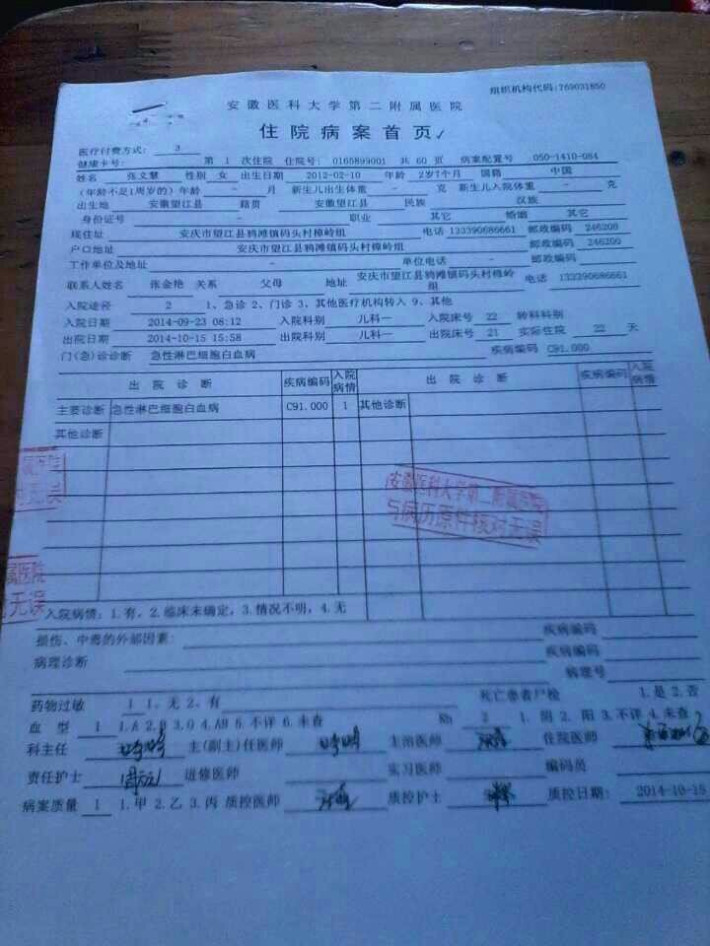 组织机构代码:769031850
安徽医科大学第二附属医院
住院病案首页✓
医疗付费方式: 3
健康卡号: 第 1 次住院 住院号: 0165899001 共 60 页 病案配置号 050-1410-084
姓名 张文慧 性别 女 出生日期 2012-02-10 年龄 2岁7个月 国籍 中国
(年龄不足1周岁的)年龄 - 月 新生儿出生体重 - 克 新生儿入院体重 - 克
出生地 安徽望江县 籍贯 安徽望江县 民族 汉族
身份证号 - 职业 其它 婚姻 其它
现住址 安庆市望江县鸦滩镇码头村樟岭组 电话 133390686661 邮政编码 246200
户口地址 安庆市望江县鸦滩镇码头村樟岭组 邮政编码 246200
工作单位及地址 - 单位电话 - 邮政编码
联系人姓名 张金艳 关系 父母 地址 安庆市望江县鸦滩镇码头村樟岭组 电话 133390686661
入院途径 2 1、急诊 2、门诊 3、其他医疗机构转入 9、其他
入院日期 2014-09-23 08:12 入院科别 儿科一 入院床号 22 转科科别
出院日期 2014-10-15 15:58 出院科别 儿科一 出院床号 21 实际住院 22 天
门(急)诊诊断 急性淋巴细胞白血病 疾病编码 C91.000
出院诊断 疾病编码 入院病情 出院诊断 疾病编码 入院病情
主要诊断 急性淋巴细胞白血病 C91.000 1 其他诊断
其他诊断
属医院
对无误
安徽医科大学第二附属医院
与病历原件核对无误
属医院
无误
入院病情: 1.有, 2.临床未确定, 3.情况不明, 4.无
损伤、中毒的外部因素: 疾病编码
病理诊断 疾病编码
病理号
药物过敏 1 1、无 2、有 死亡患者尸检 1.是 2.否
血型 1 1.A 2.B 3.O 4.AB 5.不详 6.未查 Rh 2 1.阴 2.阳 3.不详 4.未查
科主任 主(副主)任医师 主治医师 住院医师
责任护士 进修医师 实习医师 编码员
病案质量 1 1.甲 2.乙 3.丙 质控医师 质控护士 质控日期: 2014-10-15